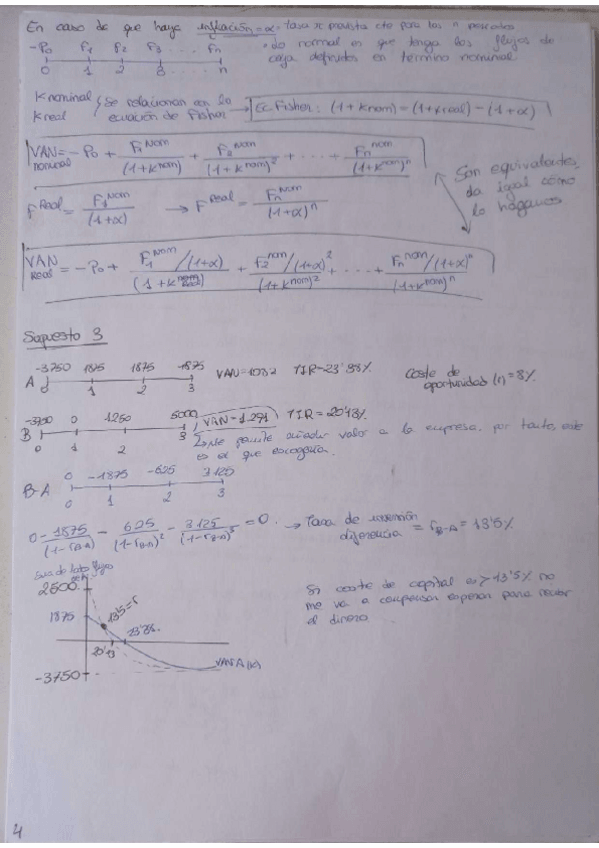 En caso de que haya inflación = α. Tasa prevista cte para los n periodos
-P₀ F₁ F₂ F₃ . . . Fₙ
0 1 2 3 . . . n
· Lo normal es que tenga los flujos de
caja definidos en termino nominal
K nominal
K real
Se relacionan en la
ecuación de Fisher
→ Ec. Fisher: (1+knom) = (1+kreal) - (1+α)
VAN nominal = -P₀ + F₁ᴺᵒᵐ/(1+kⁿᵒᵐ) + F₂ᴺᵒᵐ/(1+kⁿᵒᵐ)² + . . . + Fₙᴺᵒᵐ/(1+kⁿᵒᵐ)ⁿ
Son equivalentes,
da igual cómo
lo hagamos
F ᴿᵉᵃˡ = F₁ᴺᵒᵐ/(1+α) → F ᴿᵉᵃˡ = Fₙᴺᵒᵐ/(1+α)ⁿ
VAN Real = -P₀ + F₁ᴺᵒᵐ/(1+α)/(1+k) + F₂ⁿᵒᵐ/(1+α)²/(1+kⁿᵒᵐ)² + . . . + Fₙⁿᵒᵐ/(1+α)ⁿ/(1+kⁿᵒᵐ)ⁿ
Supuesto 3
-3750 1875 1875 1875
A 0 1 2 3
VAN=1082 TIR=23'38%
Coste de
oportunidad (r) = 8%
-3750 0 1250 5000
B 0 1 2 3
VAN=1.291 TIR=20'13%
→ Me permite añadir valor a la empresa, por tanto, este
es el que escogería.
B-A 0 -1875 -625 3125
0 1 2 3
0 - 1875/(1-r_B-A) - 625/(1-r_B-A)² - 3125/(1-r_B-A)³ = 0. → Tasa de inversión
diferencia = r_B-A = 13'5%
Suma de todos flujos
2500
1875
13'5=r
23'38%
20'13
VAN A(k)
-3750
Si coste de capital es > 13'5% no
me va a compensar esperar para recibir
el dinero
4